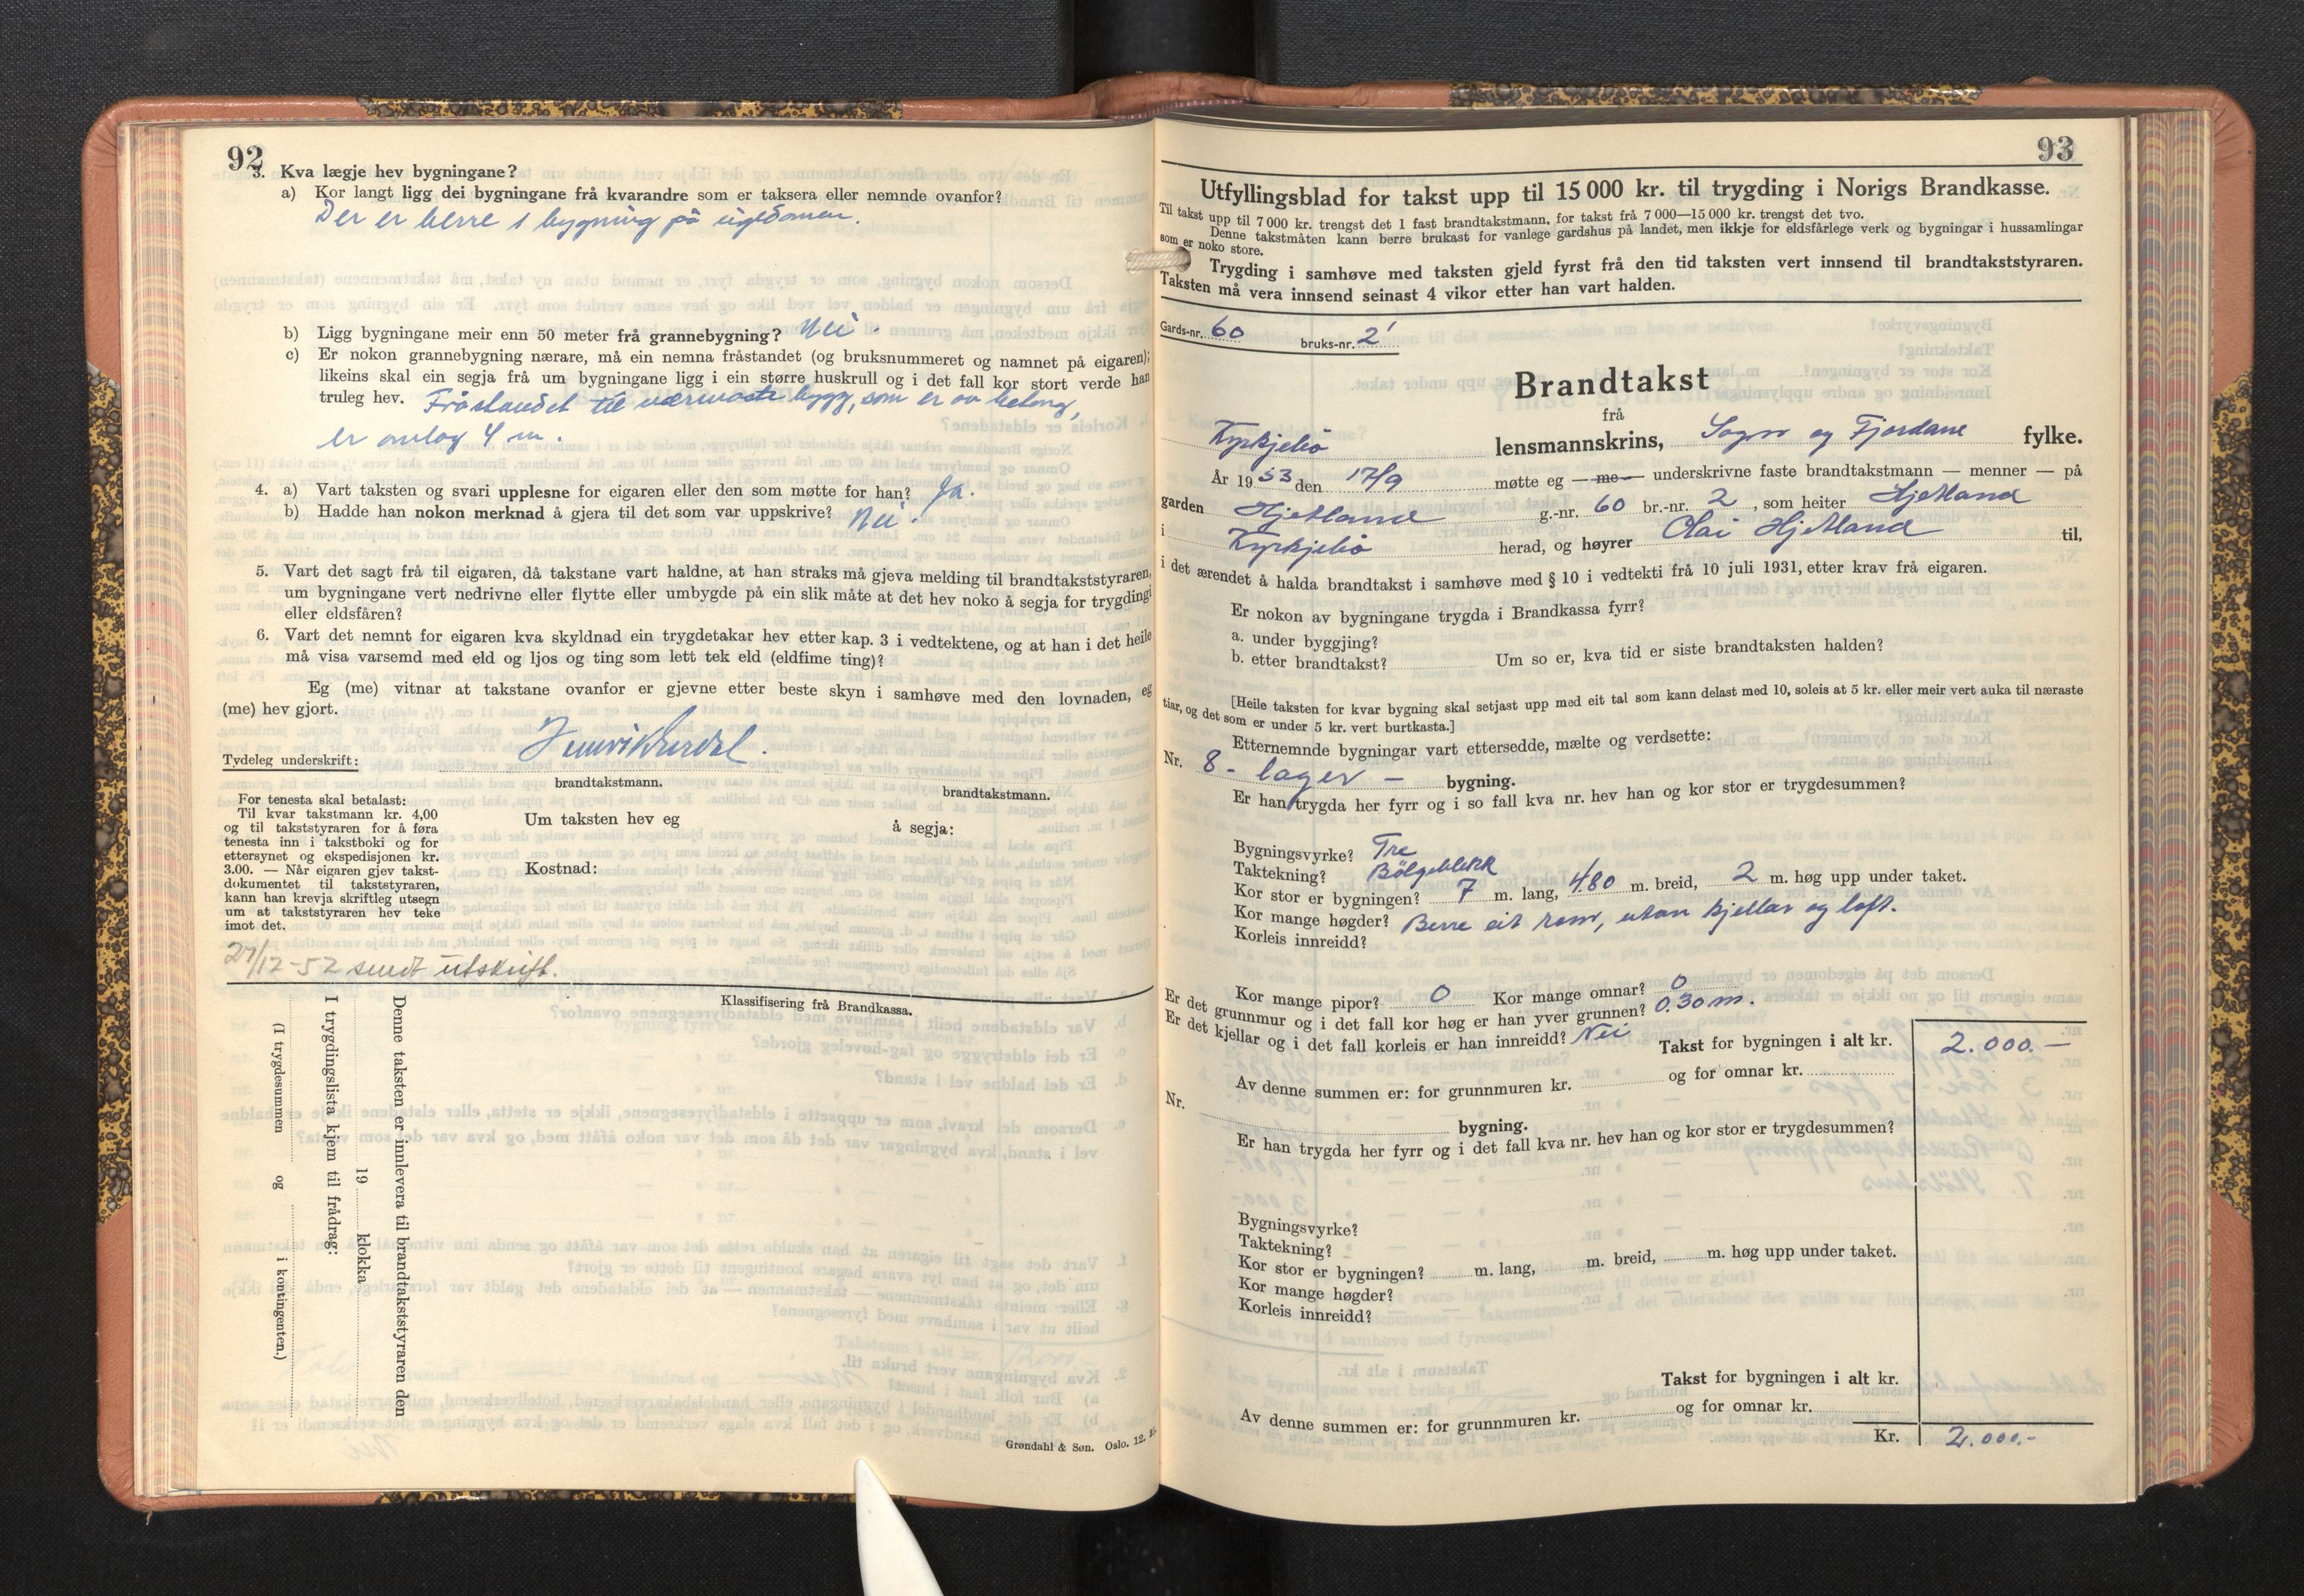 92
3. Kva lægje hev bygningane?
a) Kor langt ligg dei bygningane frå kvarandre som er taksera eller nemnde ovanfor?
Der er berre 1 bygning på eigedomen.
b) Ligg bygningane meir enn 50 meter frå grannebygning? Nei.
c) Er nokon grannebygning nærare, må ein nemna fråstandet (og bruksnummeret og namnet på eigaren);
likeins skal ein segja frå um bygningane ligg i ein større huskrull og i det fall kor stort verde han
truleg hev. Fråstandet til nærmaste bygg, som er av betong,
er omlag 4 m.
4. a) Vart taksten og svari upplesne for eigaren eller den som møtte for han? Ja.
b) Hadde han nokon merknad å gjera til det som var uppskrive? Nei.
5. Vart det sagt frå til eigaren, då takstane vart haldne, at han straks må gjeva melding til brandtakststyraren,
um bygningane vert nedrivne eller flytte eller umbygde på ein slik måte at det hev noko å segja for trygdingi
eller eldsfåren?
6. Vart det nemnt for eigaren kva skyldnad ein trygdetakar hev etter kap. 3 i vedtektene, og at han i det heile
må visa varsemd med eld og ljos og ting som lett tek eld (eldfime ting)?
Eg (me) vitnar at takstane ovanfor er gjevne etter beste skyn i samhøve med den lovnaden, eg
(me) hev gjort.
Tydeleg underskrift:
brandtakstmann.
brandtakstmann.
For tenesta skal betalast:
Til kvar takstmann kr. 4,00
og til takststyraren for å føra
tenesta inn i takstboki og for
ettersynet og ekspedisjonen kr.
3.00. — Når eigaren gjev takst-
dokumentet til takststyraren,
kann han krevja skriftleg utsegn
um at takststyraren hev teke
imot det.
Um taksten hev eg å segja:
Kostnad:
27/12-52 sendt utskrift.
Klassifisering frå Brandkassa.
Denne taksten er innlevera til brandtakststyraren den
19 klokka
I trygdingslista kjem til frådrag:
(I trygdesummen og i kontingenten.)
Grøndahl & Søn. Oslo. 12.
93
Utfyllingsblad for takst upp til 15 000 kr. til trygding i Norigs Brandkasse.
Til takst upp til 7 000 kr. trengst det 1 fast brandtakstmann, for takst frå 7 000—15 000 kr. trengst det tvo.
Denne takstmåten kann berre brukast for vanlege gardshus på landet, men ikkje for eldsfårlege verk og bygningar i hussamlingar
som er noko store.
Trygding i samhøve med taksten gjeld fyrst frå den tid taksten vert innsend til brandtakststyraren.
Taksten må vera innsend seinast 4 vikor etter han vart halden.
Gards-nr. 60 bruks-nr. 2
Brandtakst
frå
Kyrkjebö lensmannskrins, Sogn og Fjordane fylke.
År 1953 den 17/9 møtte eg — me — underskrivne faste brandtakstmann — menner — på
garden Hjetland g.-nr. 60 br.-nr. 2, som heiter Hjetland
i Kyrkjebö herad, og høyrer Olai Hjetland til,
i det ærendet å halda brandtakst i samhøve med § 10 i vedtekti frå 10 juli 1931, etter krav frå eigaren.
Er nokon av bygningane trygda i Brandkassa fyrr?
a. under byggjing?
b. etter brandtakst? Um so er, kva tid er siste brandtaksten halden?
[Heile taksten for kvar bygning skal setjast upp med eit tal som kann delast med 10, soleis at 5 kr. eller meir vert auka til næraste
tiar, og det som er under 5 kr. vert burtkasta.]
Etternemnde bygningar vart ettersedde, mælte og verdsette:
Nr. 8 - lager - bygning.
Er han trygda her fyrr og i so fall kva nr. hev han og kor stor er trygdesummen?
Bygningsvyrke? Tre
Taktekning? Bölgeblekk
Kor stor er bygningen? 7 m. lang, 4,80 m. breid, 2 m. høg upp under taket.
Kor mange høgder? Berre eit rom, utan kjellar og loft.
Korleis innreidd?
Kor mange pipor? 0 Kor mange omnar? 0
Er det grunnmur og i det fall kor høg er han yver grunnen? 0.30 m.
Er det kjellar og i det fall korleis er han innreidd? Nei
Takst for bygningen i alt kr. 2.000.-
Av denne summen er: for grunnmuren kr. og for omnar kr.
Nr. bygning.
Er han trygda her fyrr og i det fall kva nr. hev han og kor stor er trygdesummen?
Bygningsvyrke?
Taktekning?
Kor stor er bygningen? m. lang, m. breid, m. høg upp under taket.
Kor mange høgder?
Korleis innreidd?
Takst for bygningen i alt kr.
Av denne summen er: for grunnmuren kr. og for omnar kr.
Kr. 2.000.-